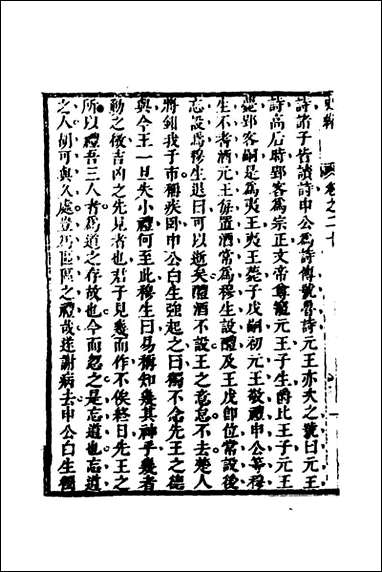 史緯 卷之二十
詩諸子皆讀詩申公爲詩傳號魯詩元王亦次之號曰元王
詩高后時郢客爲宗正文帝尊寵元王子生爵比王子元王
薨郢客嗣是爲夷王夷王薨子戊嗣初元王敬禮申公等穆
生不耆酒元王每置酒常爲穆生設醴及王戊卽位常設後
忘設焉穆生退曰可以逝矣醴酒不設王之意怠不去楚人
將鉗我于市稱疾卧申公白生強起之曰獨不念先王之德
與今王一旦失小禮何至此穆生曰易稱知幾其神乎幾者
動之微吉凶之先見者也君子見幾而作不俟終日先王之
所以禮吾三人者爲道之存故也今而忽之是忘道也忘道
之人胡可與久處豈爲區區之禮哉遂謝病去申公白生獨